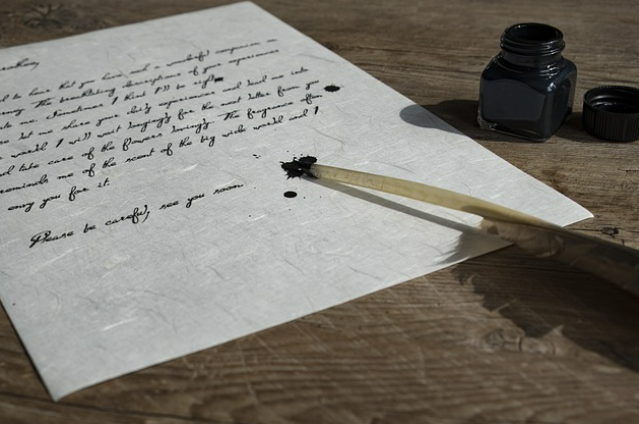 to hear that you have had a wonderful
The breathtaking descriptions of your experiences
me. Sometimes I think I'll be right
let me share your daily experiences and lead me into
I will wait longingly for the next letter from you
take care of the flowers lovingly. The fragrance of
reminds me of the scent of the big wide world and I
envy you for it.
Please be careful, see you soon.